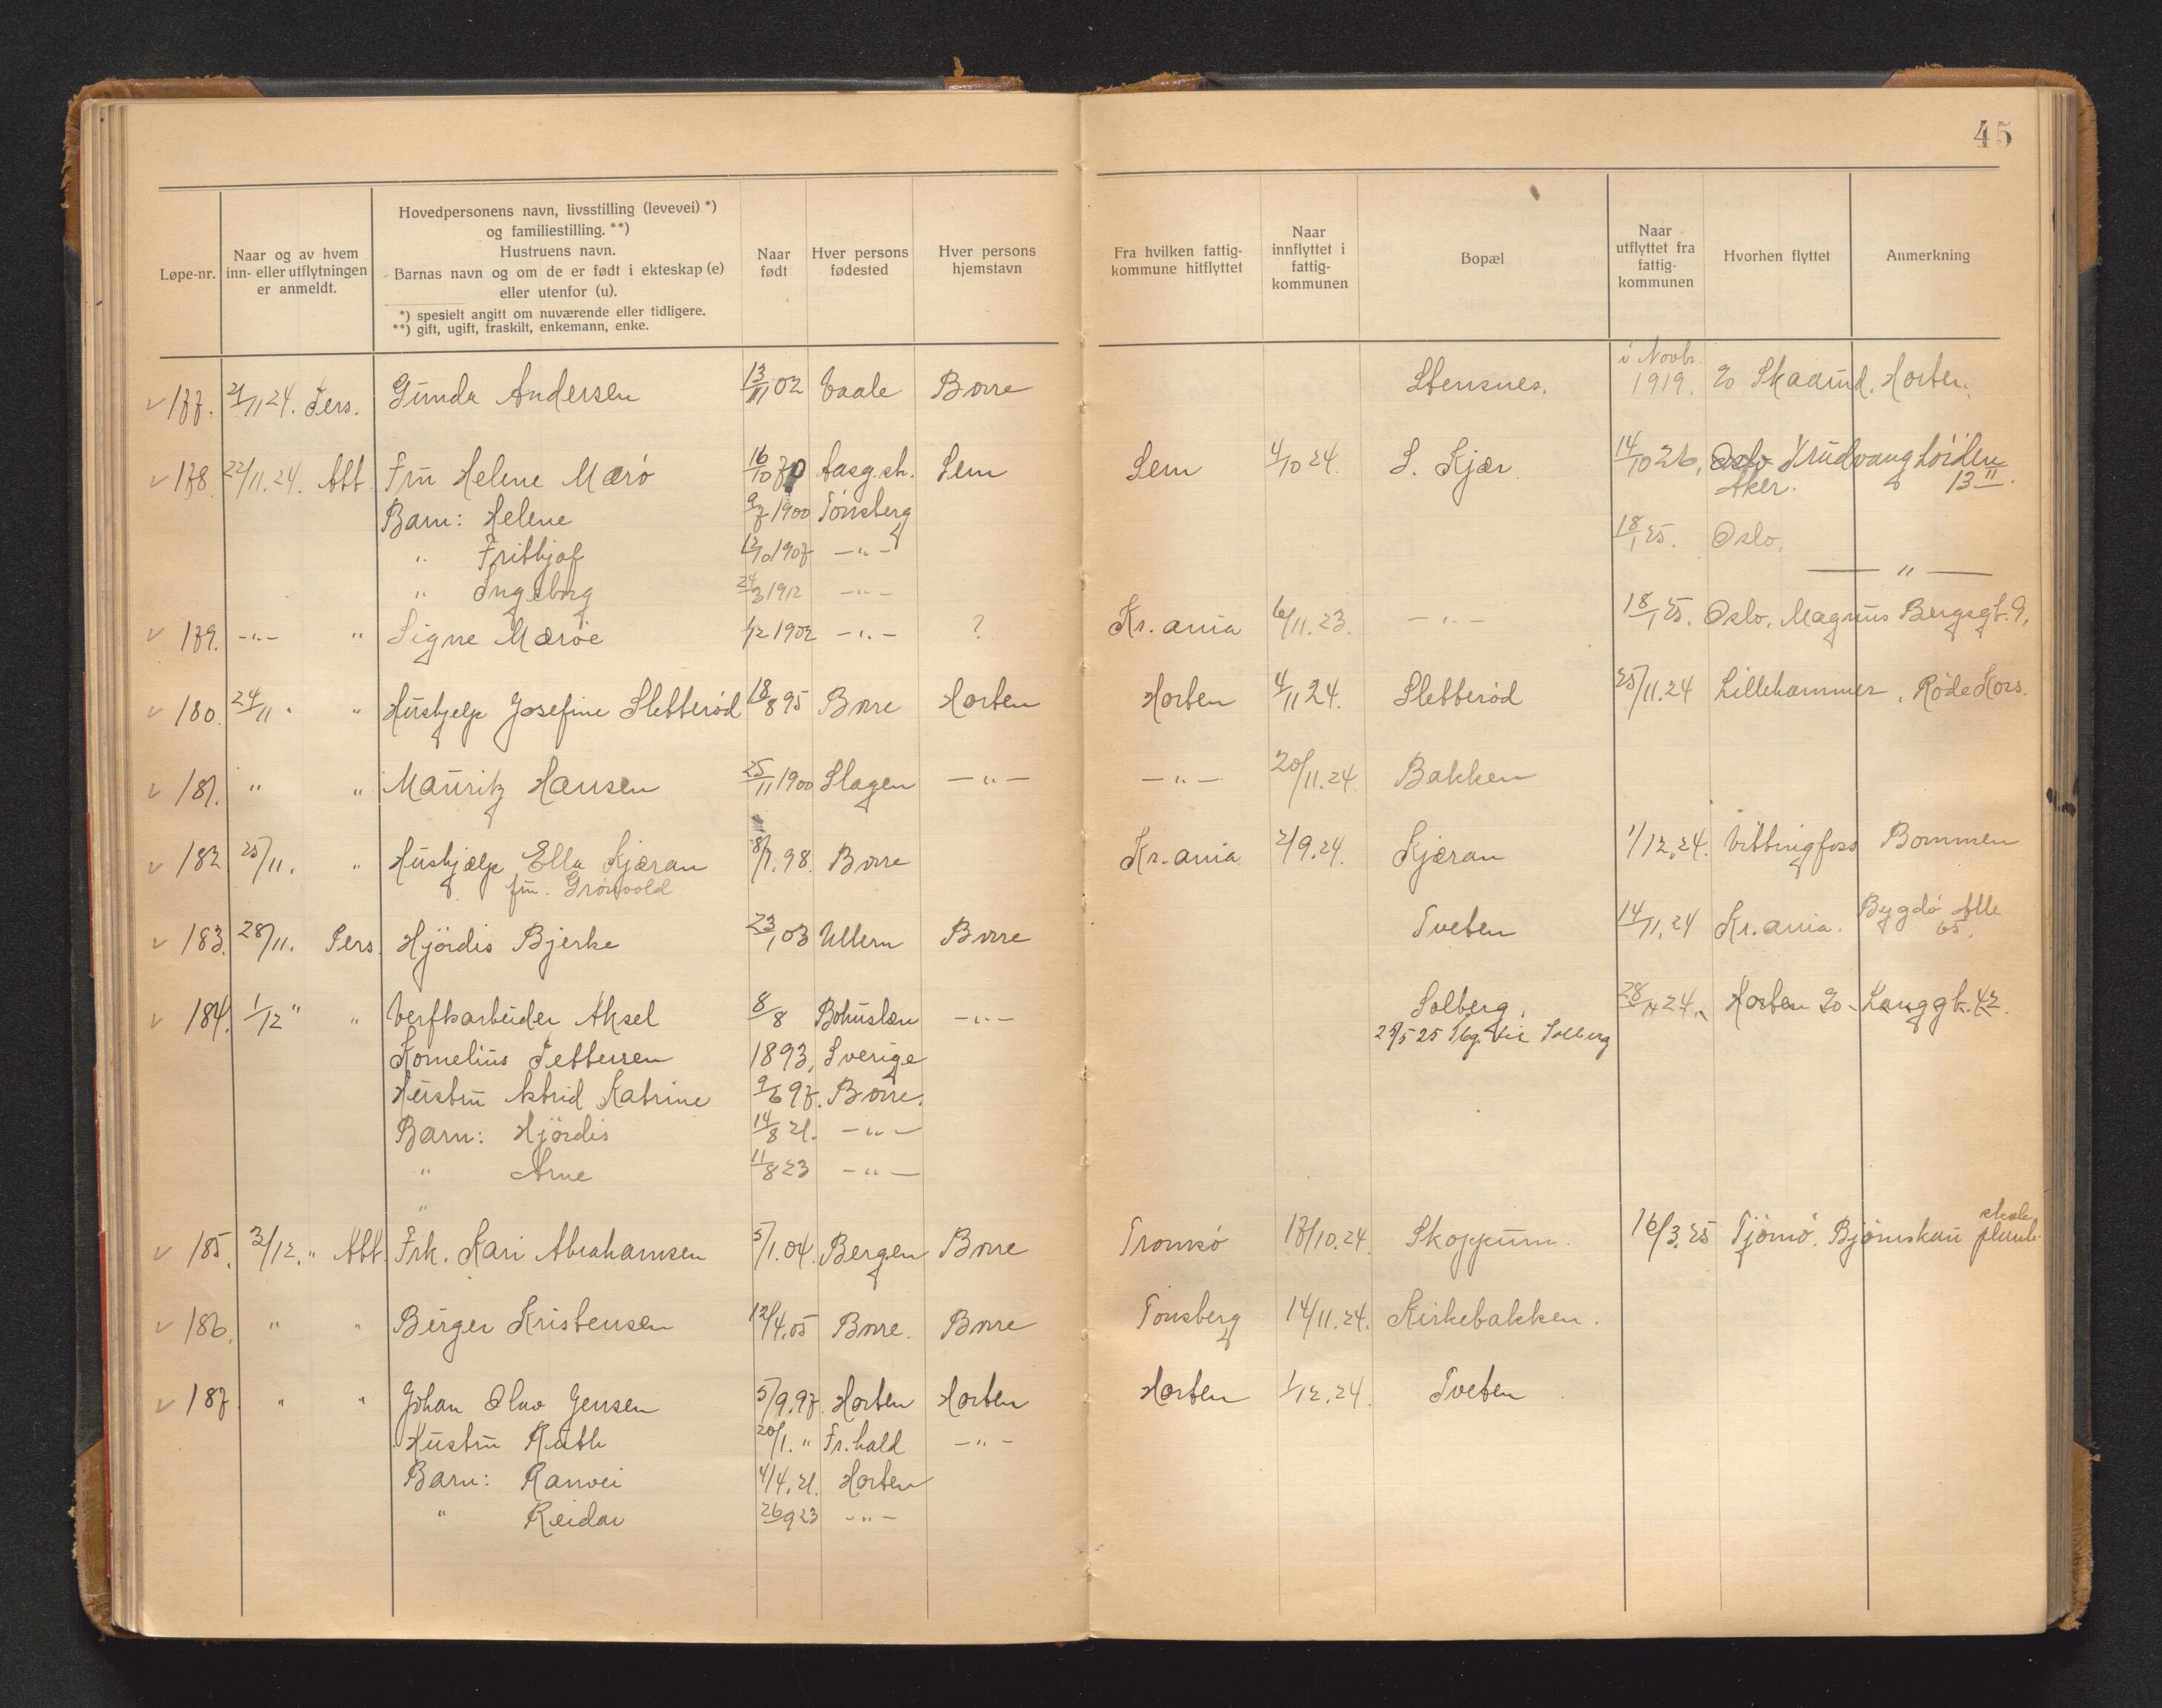 45
Løpe-nr.
Naar og av hvem inn- eller utflytningen er anmeldt.
Hovedpersonens navn, livsstilling (levevei) *)
og familiestilling. **)
Hustruens navn.
Barnas navn og om de er født i ekteskap (e)
eller utenfor (u).
*) spesielt angitt om nuværende eller tidligere.
**) gift, ugift, fraskilt, enkemann, enke.
Naar født
Hver persons fødested
Hver persons hjemstavn
Fra hvilken fattig-kommune hitflyttet
Naar innflyttet i fattig-kommunen
Bopæl
Naar utflyttet fra fattig-kommunen
Hvorhen flyttet
Anmerkning
177. 21/11 24. Pers. Gunda Andersen 13/11 02 Vaale Borre Stensnes. i Novbr. 1919. Skaarud. Horten.
178. 22/11. 24. Att Fru Helene Mærö 16/10 70 Sem Sem 4/10 24. S. Kjær 14/10 26, Oslo
Aker. 13 II.
Barn: Helene 9/7 1900 Tönsberg
" Frithjof 12/10 1907 -"- 18/1 25. Oslo.
" Ingeborg 24/3 1912 -"- -"-
179. -"- " Signe Mæröe 1/12 1902 -"- ? Kr.ania 6/11. 23. -"- 18/1 25. Oslo. Magnus Bergsgt. 9.
180. 24/11 " " Hushjelp Josefine Sletteröd 18/8 95 Borre Horten Horten 4/11 24. Sletteröd 25/11. 24 Lillehammer, Röde Kors.
181. " " Mauritz Hansen 25/11 1900 Slagen -"- -"- 20/11. 24. Bakken
182 25/11. " Hushjælp Ella Kjæran 8/7. 98. Borre Kr.ania 2/9. 24. Kjæran 1/12. 24. Vittingfoss Bommen
fru. Grönvold
183. 28/11. Pers. Hjördis Bjerke 23/1 03 Ullern Borre Tveten 14/11. 24 Kr.ania. Bygdö Alle 65.
184. 1/12 " " Verftsarbeider Aksel 8/8 Bohuslæn -"- Solberg. 28/11 24. Horten Langgt. 42.
Kornelius Pettersen 1893, Sverige 25 Solberg
Hustru Astrid Katrine 9/6 97. Borre.
Barn: Hjördis 14/8 21. -"-
" Arne 11/8 23 -"-
"
185. 3/12. " Att. Frk. Kari Abrahamsen 5/1. 04. Bergen Borre Tromsö 17/10. 24. Skoppum. 16/3. 25 Tjömö. Björnskau skole
186. " " Birger Kristensen 12/4. 05 Borre. Borre Tönsberg 14/11. 24. Kirkebakken.
187. " " Johan Olav Jensen 5/9. 97. Horten Horten Horten 1/12. 24. Tveten
Hustru Ruth 20/1. " Fr.hald -"-
Barn: Ranvei 4/4. 21. Horten
" Reidar 26/9 23 -"-